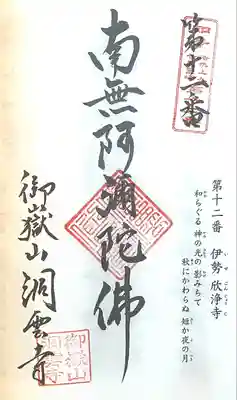 第十二番
南無阿彌陀佛
御嶽山 洞雲寺
第十二番 伊勢 欣浄寺
和らぐる 神の光の 影みちて
秋にかわらぬ 短か夜の月
御嶽山
洞雲寺